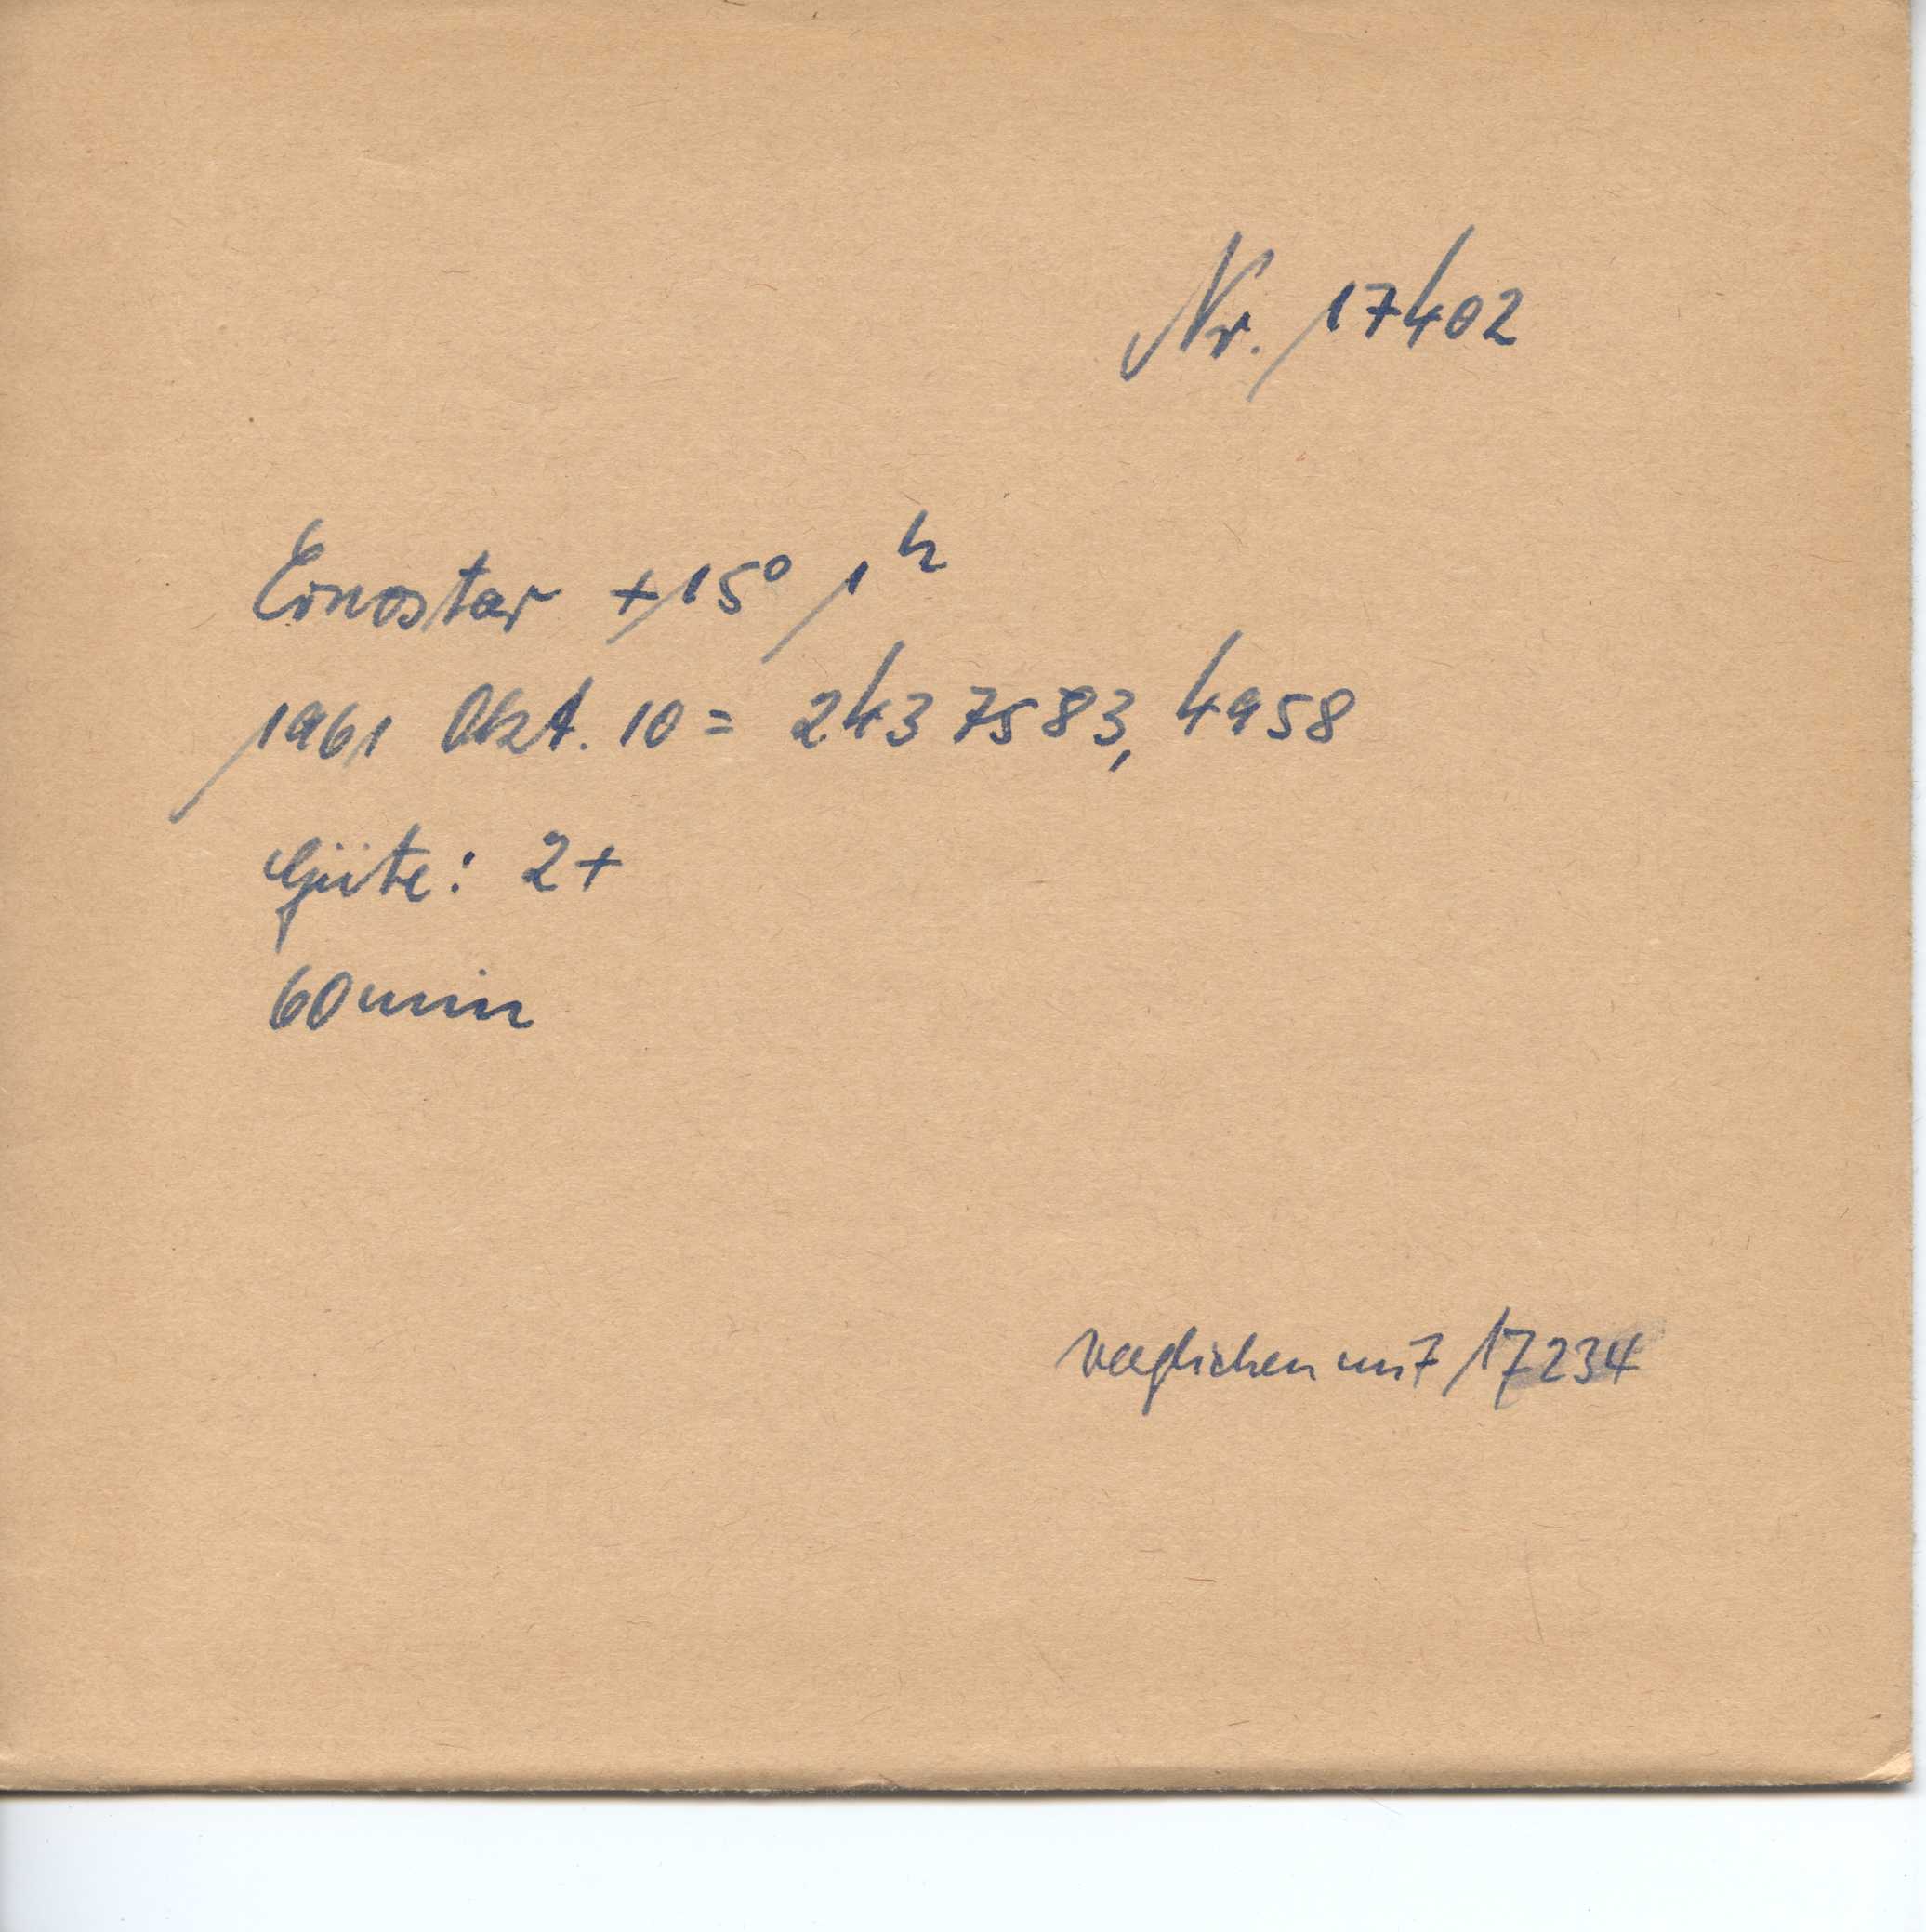 Nr. 17402
Ernostar +15° 1h
1961 Okt. 10 = 243 7583,4958
Güte: 2+
60 min
verglichen mit 17234